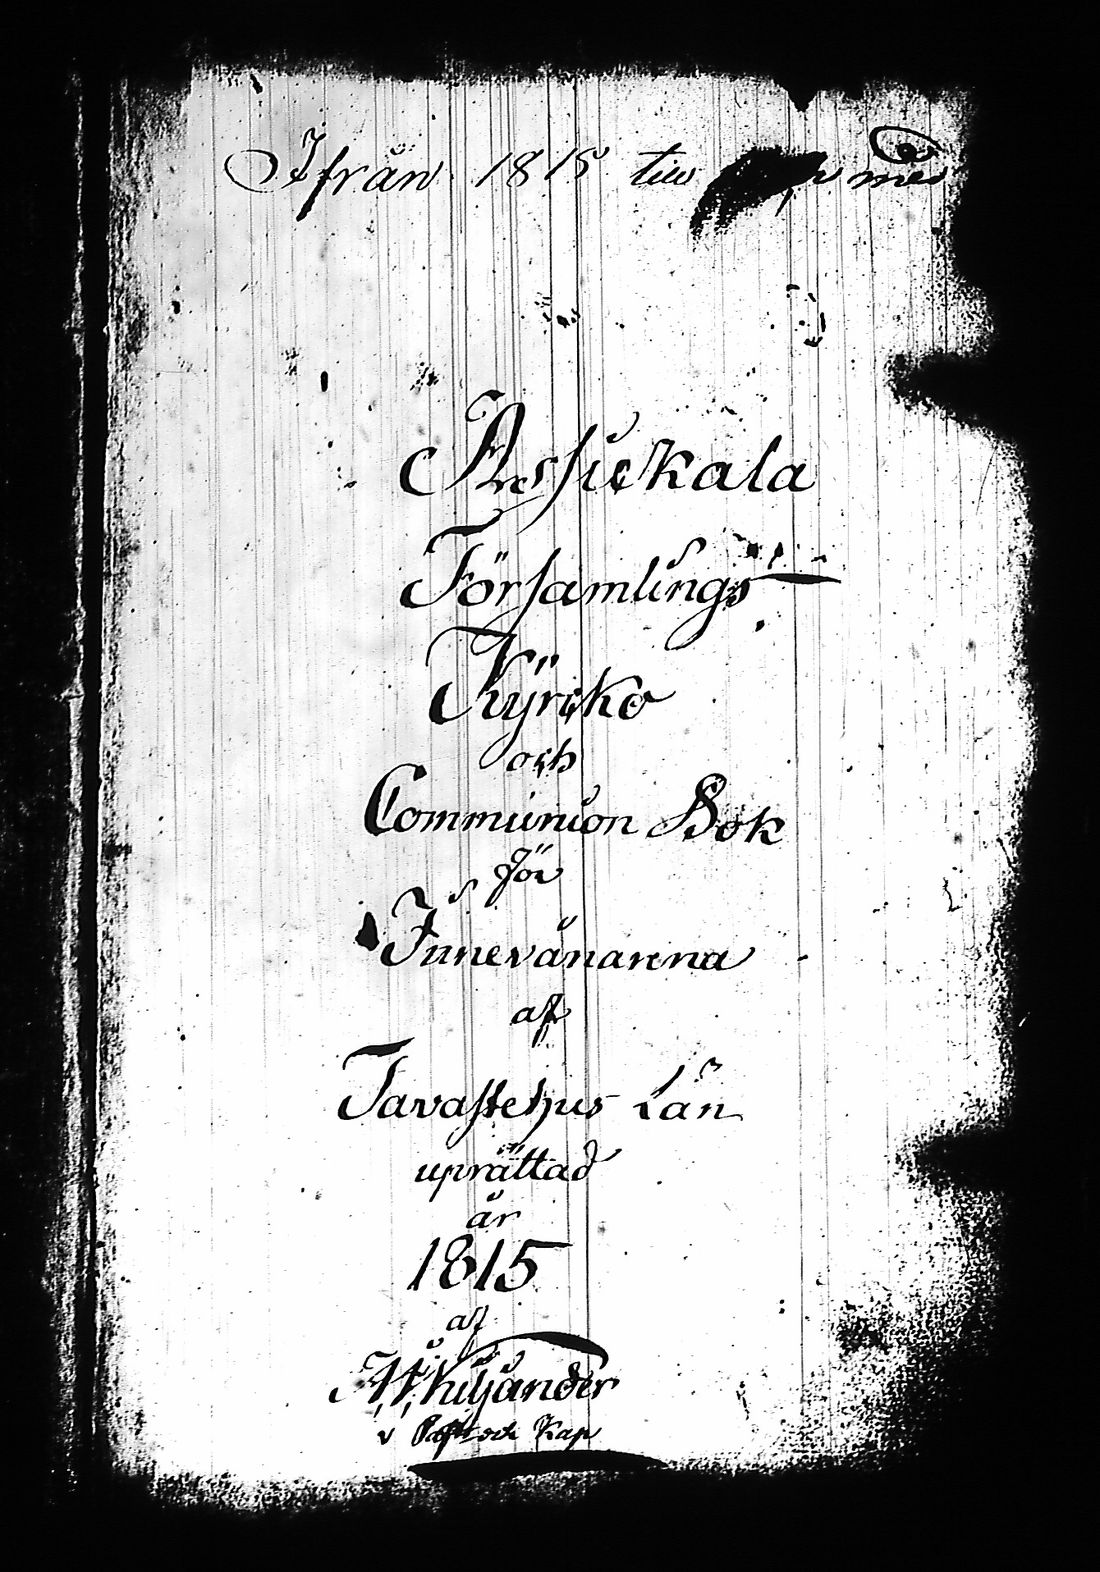 Ifrån 1815 till med
Ressiekala
Församlings
Kÿrcko
och
Communion Bok
för
Innevånarena
af
Tavastehus Län
uprättad
år
1815
af
Kiljander
v Past och Kap